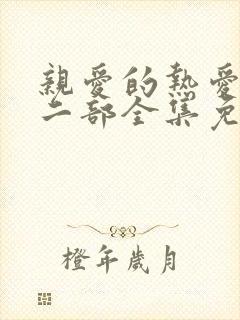 親愛的熱愛
二部全集免
橙年歲月